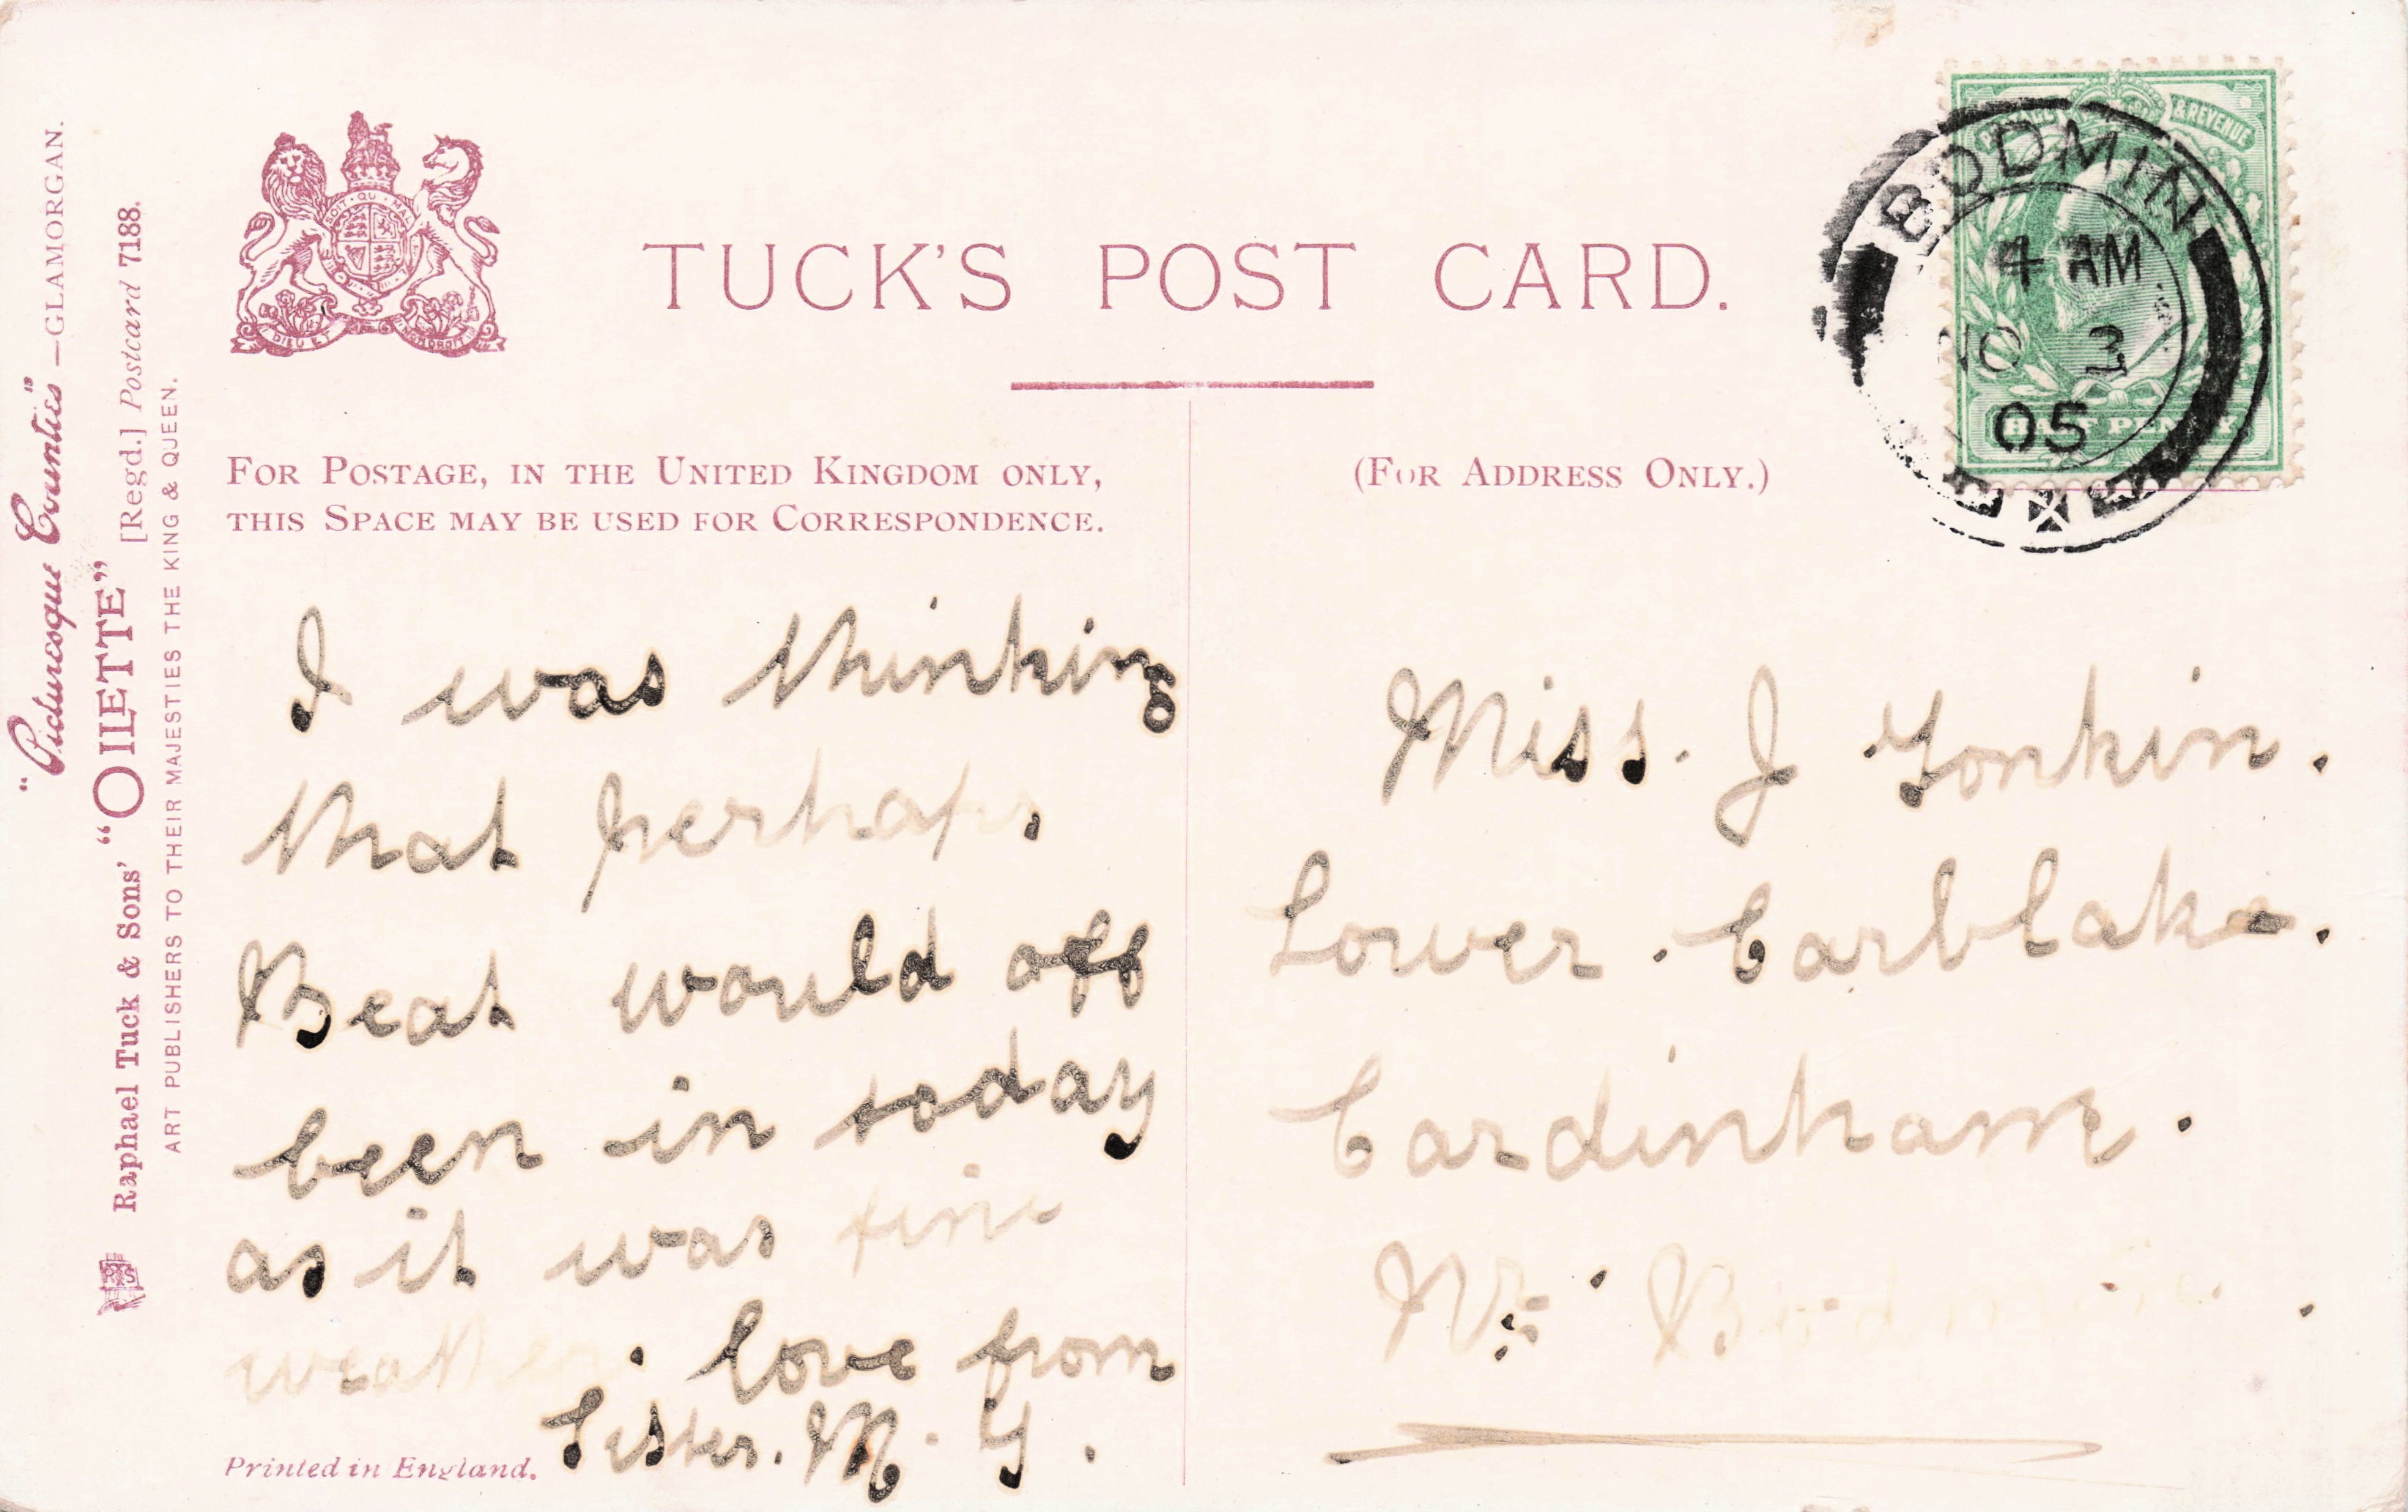 "Picturesque Counties"—GLAMORGAN.
Raphael Tuck & Sons' "OILETTE" [Regd.] Postcard 7188.
ART PUBLISHERS TO THEIR MAJESTIES THE KING & QUEEN.
SOIT·QU·MAL
DIEU ET MON DROIT
TUCK'S POST CARD.
POSTAGE & REVENUE
HALF PENNY
BODMIN
4 AM
NO 3
05
FOR POSTAGE, IN THE UNITED KINGDOM ONLY,
THIS SPACE MAY BE USED FOR CORRESPONDENCE.
I was thinking
that perhaps.
Beat would off
been in today
as it was fine
weather. love from
Sister. M. T.
Printed in England.
(FOR ADDRESS ONLY.)
Miss. J Tonkin.
Lower. Carblake.
Cardinham.
Nr. Bodmin.